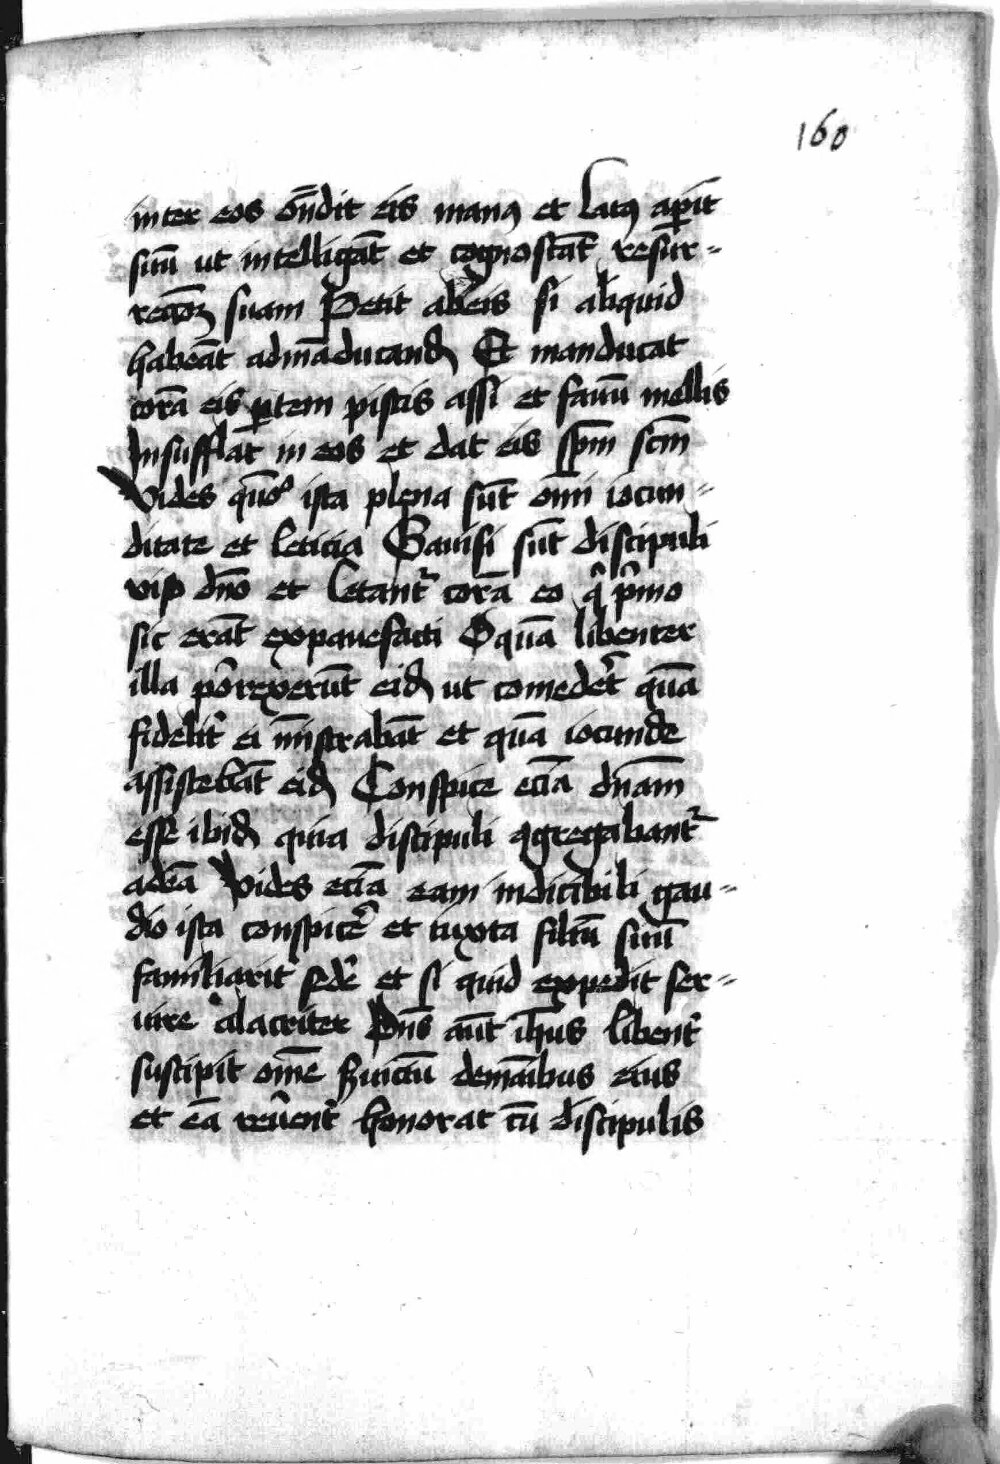 160
inter eos on̄dit eis manꝯ et latꝯ aꝑit
suū ut intelligāt et cognoscāt resur-
rectōeꝫ suam Petit ab eis si aliquid
habeāt ad māducand̄ Et manducat
corā eis ꝑtem piscis assi et fauū mellis
Insufflat in eos et dat eis sp̄m scm̄
Vides quō ista plena sūt om̄i iocun-
ditate et leticia Gauisi sūt discipuli
viso dn̄o et letant̉ corā eo q̉ p̉mo
sic erāt expauefacti O quā libenter
illa porrexerūt eid̄ ut comedet̉ quā
fidelit̉ ei mīstrabāt et quā iocunde
assistebāt eid̄ Conspice eciā dn̄am
esse ibid̄ quia discipuli ꝯgregabant̉
ad eā Vides eciā eam indicibili gau-
dio ista conspice᷑ et iuxta filiū suū
familiarit̉ sede᷑ et si quid expedit ser-
uire alacriter Dn̄s aut̄ ih̄us libent̉
suscipit om̄e s̉uiciū de manibus eius
et eā reūent̉ honorat cū discipulis